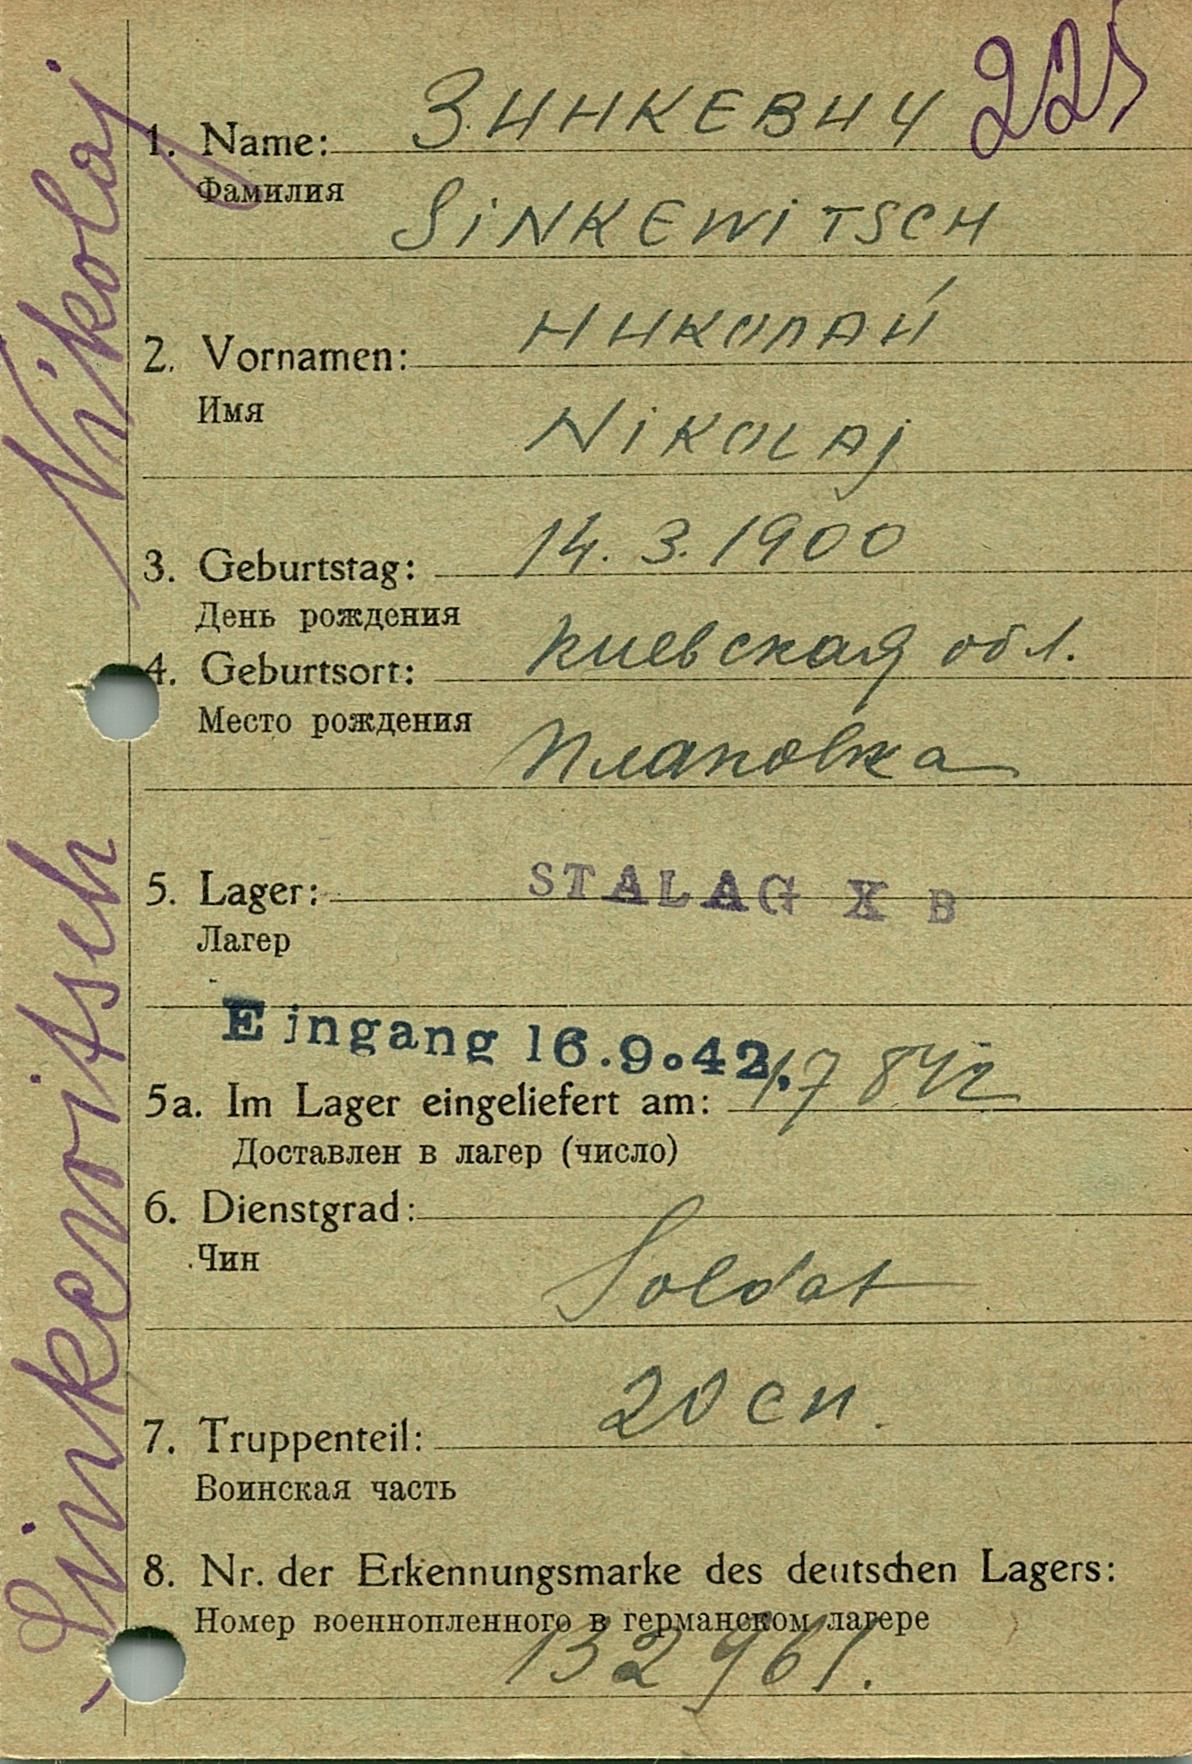 225
1. Name: ЗИНКЕВИЧ
Фамилия
SiNKEWiTSCH
2. Vornamen: НИКОЛАЙ
Имя
NiKOLAj
3. Geburtstag: 14. 3. 1900
День рождения
4. Geburtsort: Киевская обл.
Место рождения
5. Lager: STALAG X B
Лагерь
Eingang 16.9.42.
5a. Im Lager eingeliefert am: 17 8 42
Доставлен в лагер (число)
6. Dienstgrad:
Чин
Soldat
7. Truppenteil: 20 сп.
Воинская часть
8. Nr. der Erkennungsmarke des deutschen Lagers:
Номер военнопленного в германском лагере
132961.
Sinkewitsch Nikolaj